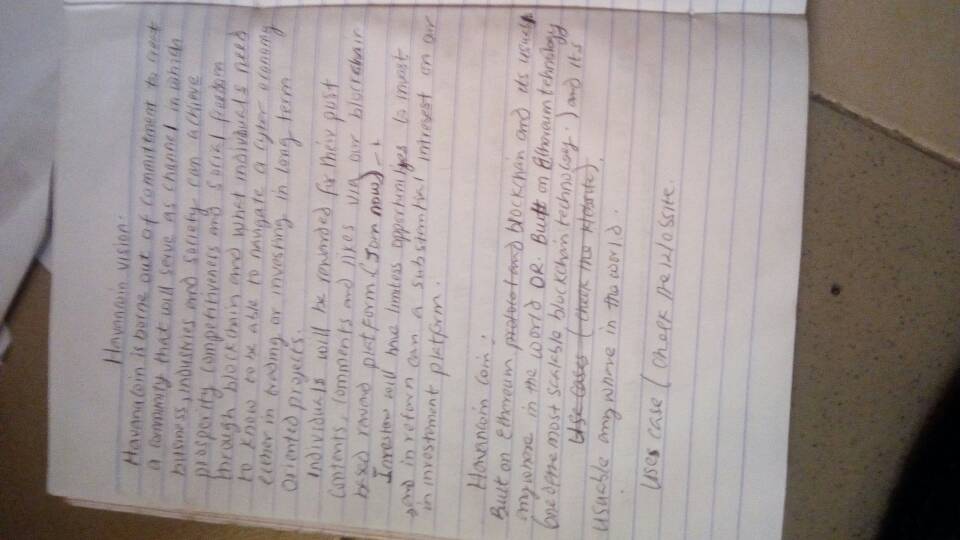 Havancoin vision:
Havanacoin is borne out of committment to creat
a community that will serve as channel in which
business, industries and society can achieve
prosperity competitiveners and social freedom
through blockchain and what individuals need
to know to be able to navigate a cyber economy
either in trading or investing in long term
Oriented projects.
Individuals will be rewarded for their past
contents, comments and likes via our blockchair
based reward platform (Join now)
Investors will have limitless opportunities to invest
and in return can a substantial intrest on our
in investoment platform.
Havancoin Coin:
Built on Ethereum protocol and blockchan and its usuable
anywhere in the world OR. Built on Ethoreum tehnology
(one of the most scaleble blockchain technology.) and its
Use cases (check the Website).
Usuable anywhere in the world.
Uses case ( Check the